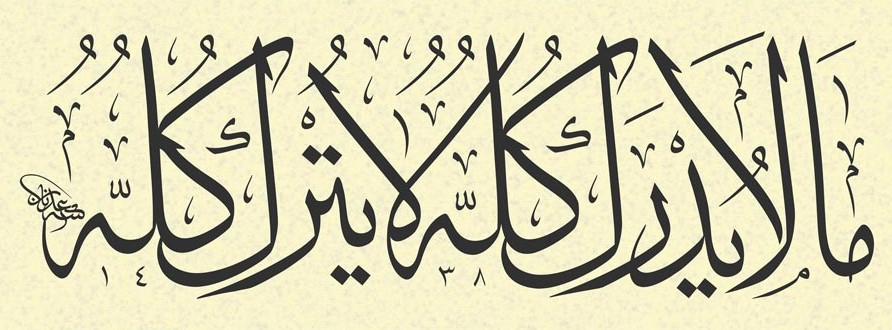 مَا لَا يُدْرَكُ كُلُّهُ لَا يُتْرَكُ كُلُّهُ
١٤٣٨